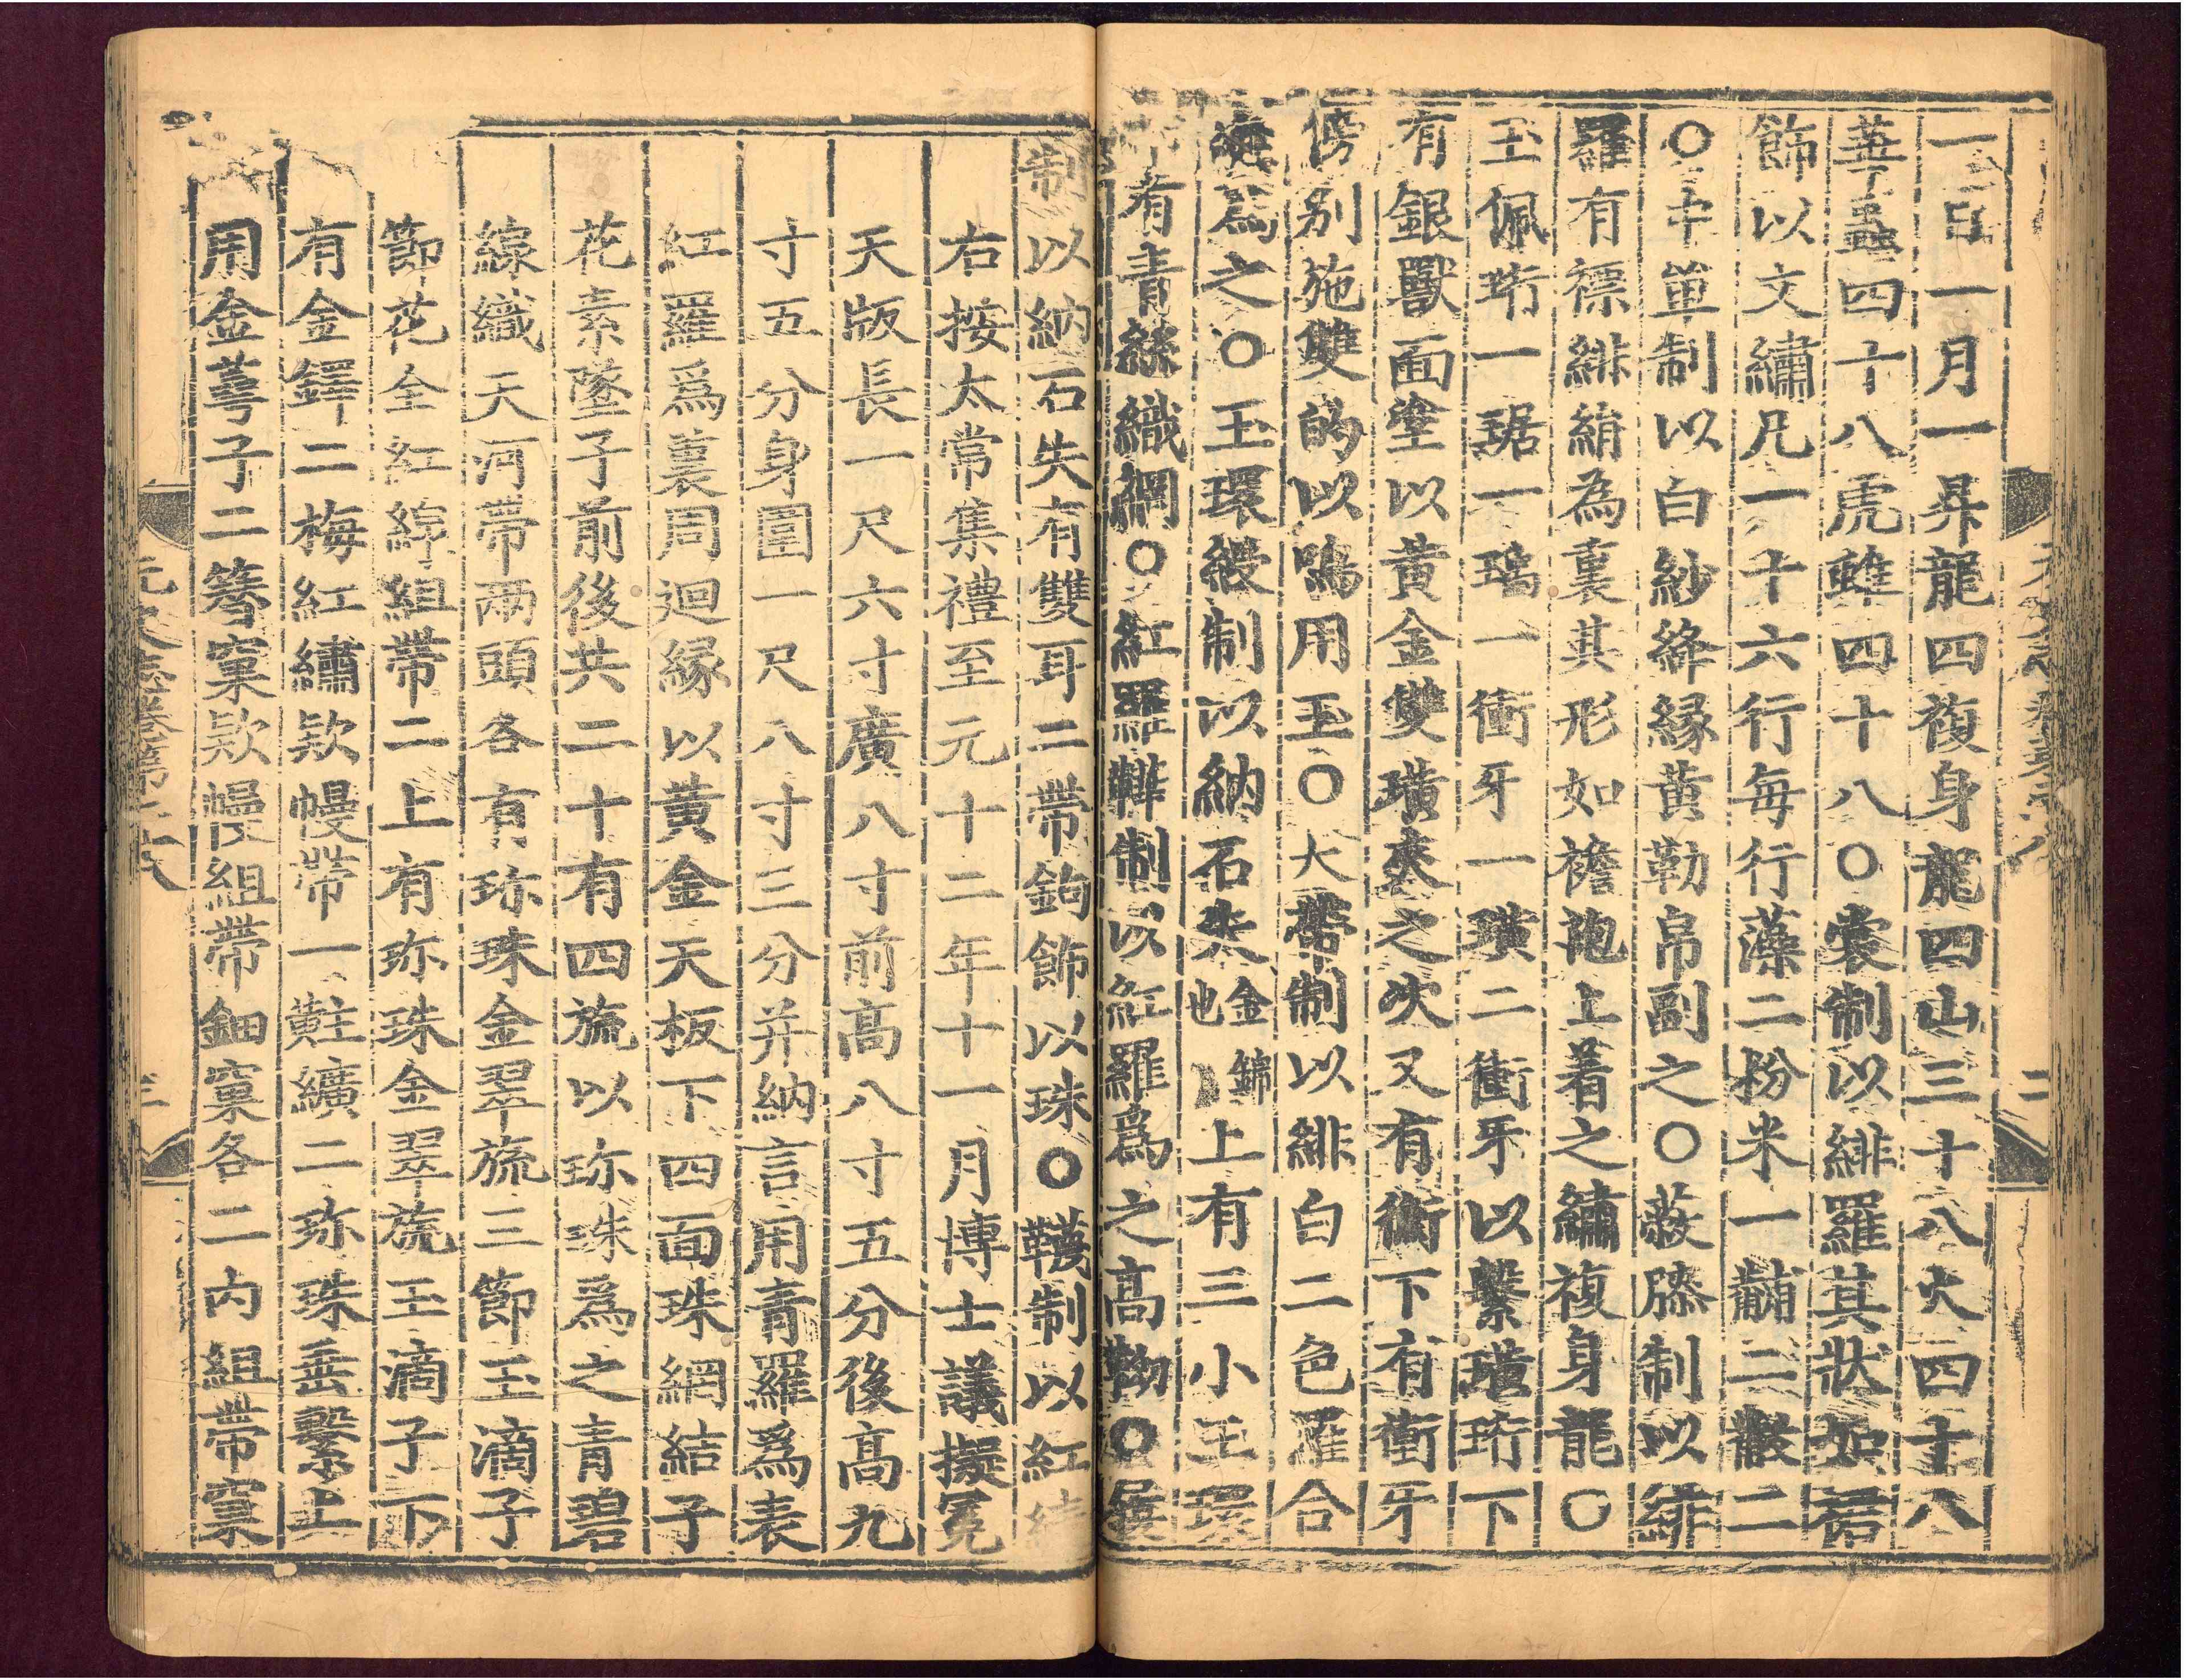 一日一月一昇龍四複身龍四山三十八火四十八
華蟲四十八虎蜼四十八〇裳制以緋羅其狀如裙
飾以文繡凡一十六行每行藻二粉米一黼二黻二
〇中單制以白紗絳縁黄勒帛副之〇蔽膝制以緋
羅有褾緋絹為裏其形如襜袍上着之繡複身龍〇
玉佩珩一琚一瑀一衝牙一璜二衝牙以繫璜珩下
有銀獸面塗以黄金雙璜夾之次又有衡下有衝牙
傍别施雙的以鳴用玉〇大帶制以緋白二色羅合
縫爲之〇玉環綬制以納石失金錦也上有三小玉環
下有青絲織網〇紅羅鞾制以紅羅爲之高靿〇屨
制以納石失有雙耳二帶鉤飾以珠〇韈制以紅綾
右按太常集禮至元十二年十一月博士議擬冕
天版長一尺六寸廣八寸前高八寸五分後高九
寸五分身圍一尺八寸三分并納言用青羅爲表
紅羅爲裏周迴縁以黄金天板下四面珠網結子
花素墜子前後共二十有四旒以珎珠爲之青碧
線織天河帶兩頭各有珎珠金翠旒三節玉滴子
節花全紅綜組帶二上有珎珠金翠旒玉滴子下
有金鐸二梅紅繡款幔帶一黈纊二珎珠垂繫上
用金萼子二簪窠款幔組帶鈿窠各二内組帶窠
元史志卷第二十八
三